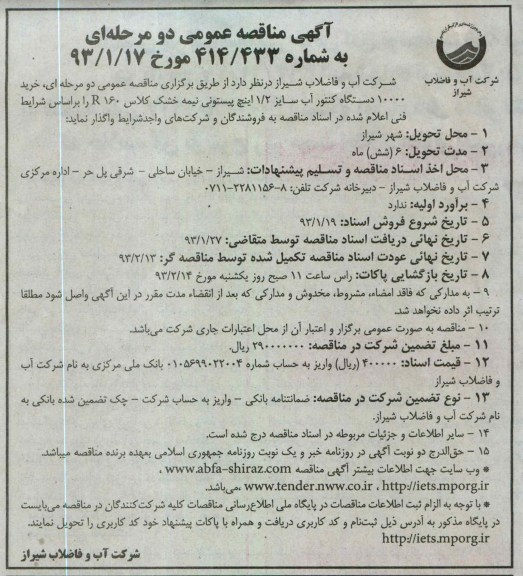 آگهی مناقصه عمومی دو مرحله‌ای
به شماره ۴۱۴/۴۳۳ مورخ ۹۳/۱/۱۷
شرکت آب و فاضلاب
شیراز
شرکت آب و فاضلاب شیراز درنظر دارد از طریق برگزاری مناقصه عمومی دو مرحله ای، خرید
۱۰۰۰۰ دستگاه کنتور آب سایز ۱/۲ اینچ پیستونی نیمه خشک کلاس R ۱۶۰ را براساس شرایط
فنی اعلام شده در اسناد مناقصه به فروشندگان و شرکت‌های واجدشرایط واگذار نماید:
۱ - محل تحویل: شهر شیراز
۲ - مدت تحویل: ۶ (شش) ماه
۳ - محل اخذ اسناد مناقصه و تسلیم پیشنهادات: شیراز – خیابان ساحلی – شرقی پل حر – اداره مرکزی
شرکت آب و فاضلاب شیراز – دبیرخانه شرکت تلفن: ۸-۲۲۸۱۱۵۶-۰۷۱۱
۴ - برآورد اولیه: ندارد
۵ - تاریخ شروع فروش اسناد: ۹۳/۱/۱۹
۶ - تاریخ نهائی دریافت اسناد مناقصه توسط متقاضی: ۹۳/۱/۲۷
۷ - تاریخ نهائی عودت اسناد مناقصه تکمیل شده توسط مناقصه گر: ۹۳/۲/۱۳
۸ - تاریخ بازگشایی پاکات: راس ساعت ۱۱ صبح روز یکشنبه مورخ ۹۳/۲/۱۴
۹ - به مدارکی که فاقد امضاء، مشروط، مخدوش و مدارکی که بعد از انقضاء مدت مقرر در این آگهی واصل شود مطلقا
ترتیب اثر داده نخواهد شد.
۱۰ - مناقصه به صورت عمومی برگزار و اعتبار آن از محل اعتبارات جاری شرکت می‌باشد.
۱۱ - مبلغ تضمین شرکت در مناقصه: ۲۹۰۰۰۰۰۰۰ ریال.
۱۲ - قیمت اسناد: ۴۰۰۰۰۰ (ریال) واریز به حساب شماره ۰۱۰۵۶۹۹۰۲۲۰۰۴ بانک ملی مرکزی به نام شرکت آب
و فاضلاب شیراز
۱۳ - نوع تضمین شرکت در مناقصه: ضمانتنامه بانکی – واریز به حساب شرکت – چک تضمین شده بانکی به
نام شرکت آب و فاضلاب شیراز.
۱۴ - سایر اطلاعات و جزئیات مربوطه در اسناد مناقصه درج شده است.
۱۵ - حق‌الدرج دو نوبت آگهی در روزنامه خبر و یک نوبت روزنامه جمهوری اسلامی بعهده برنده مناقصه میباشد.
* وب سایت جهت اطلاعات بیشتر آگهی مناقصه www.abfa-shiraz.com ،
www.tender.nww.co.ir ، http://iets.mporg.ir می‌باشد.
* با توجه به الزام ثبت اطلاعات مناقصات در پایگاه ملی اطلاع‌رسانی مناقصات کلیه شرکت‌کنندگان در مناقصه می‌بایست
در پایگاه مذکور به آدرس ذیل ثبت‌نام و کد کاربری دریافت و همراه با پاکات پیشنهاد خود کد کاربری را تحویل نمایند.
http://iets.mporg.ir
شرکت آب و فاضلاب شیراز